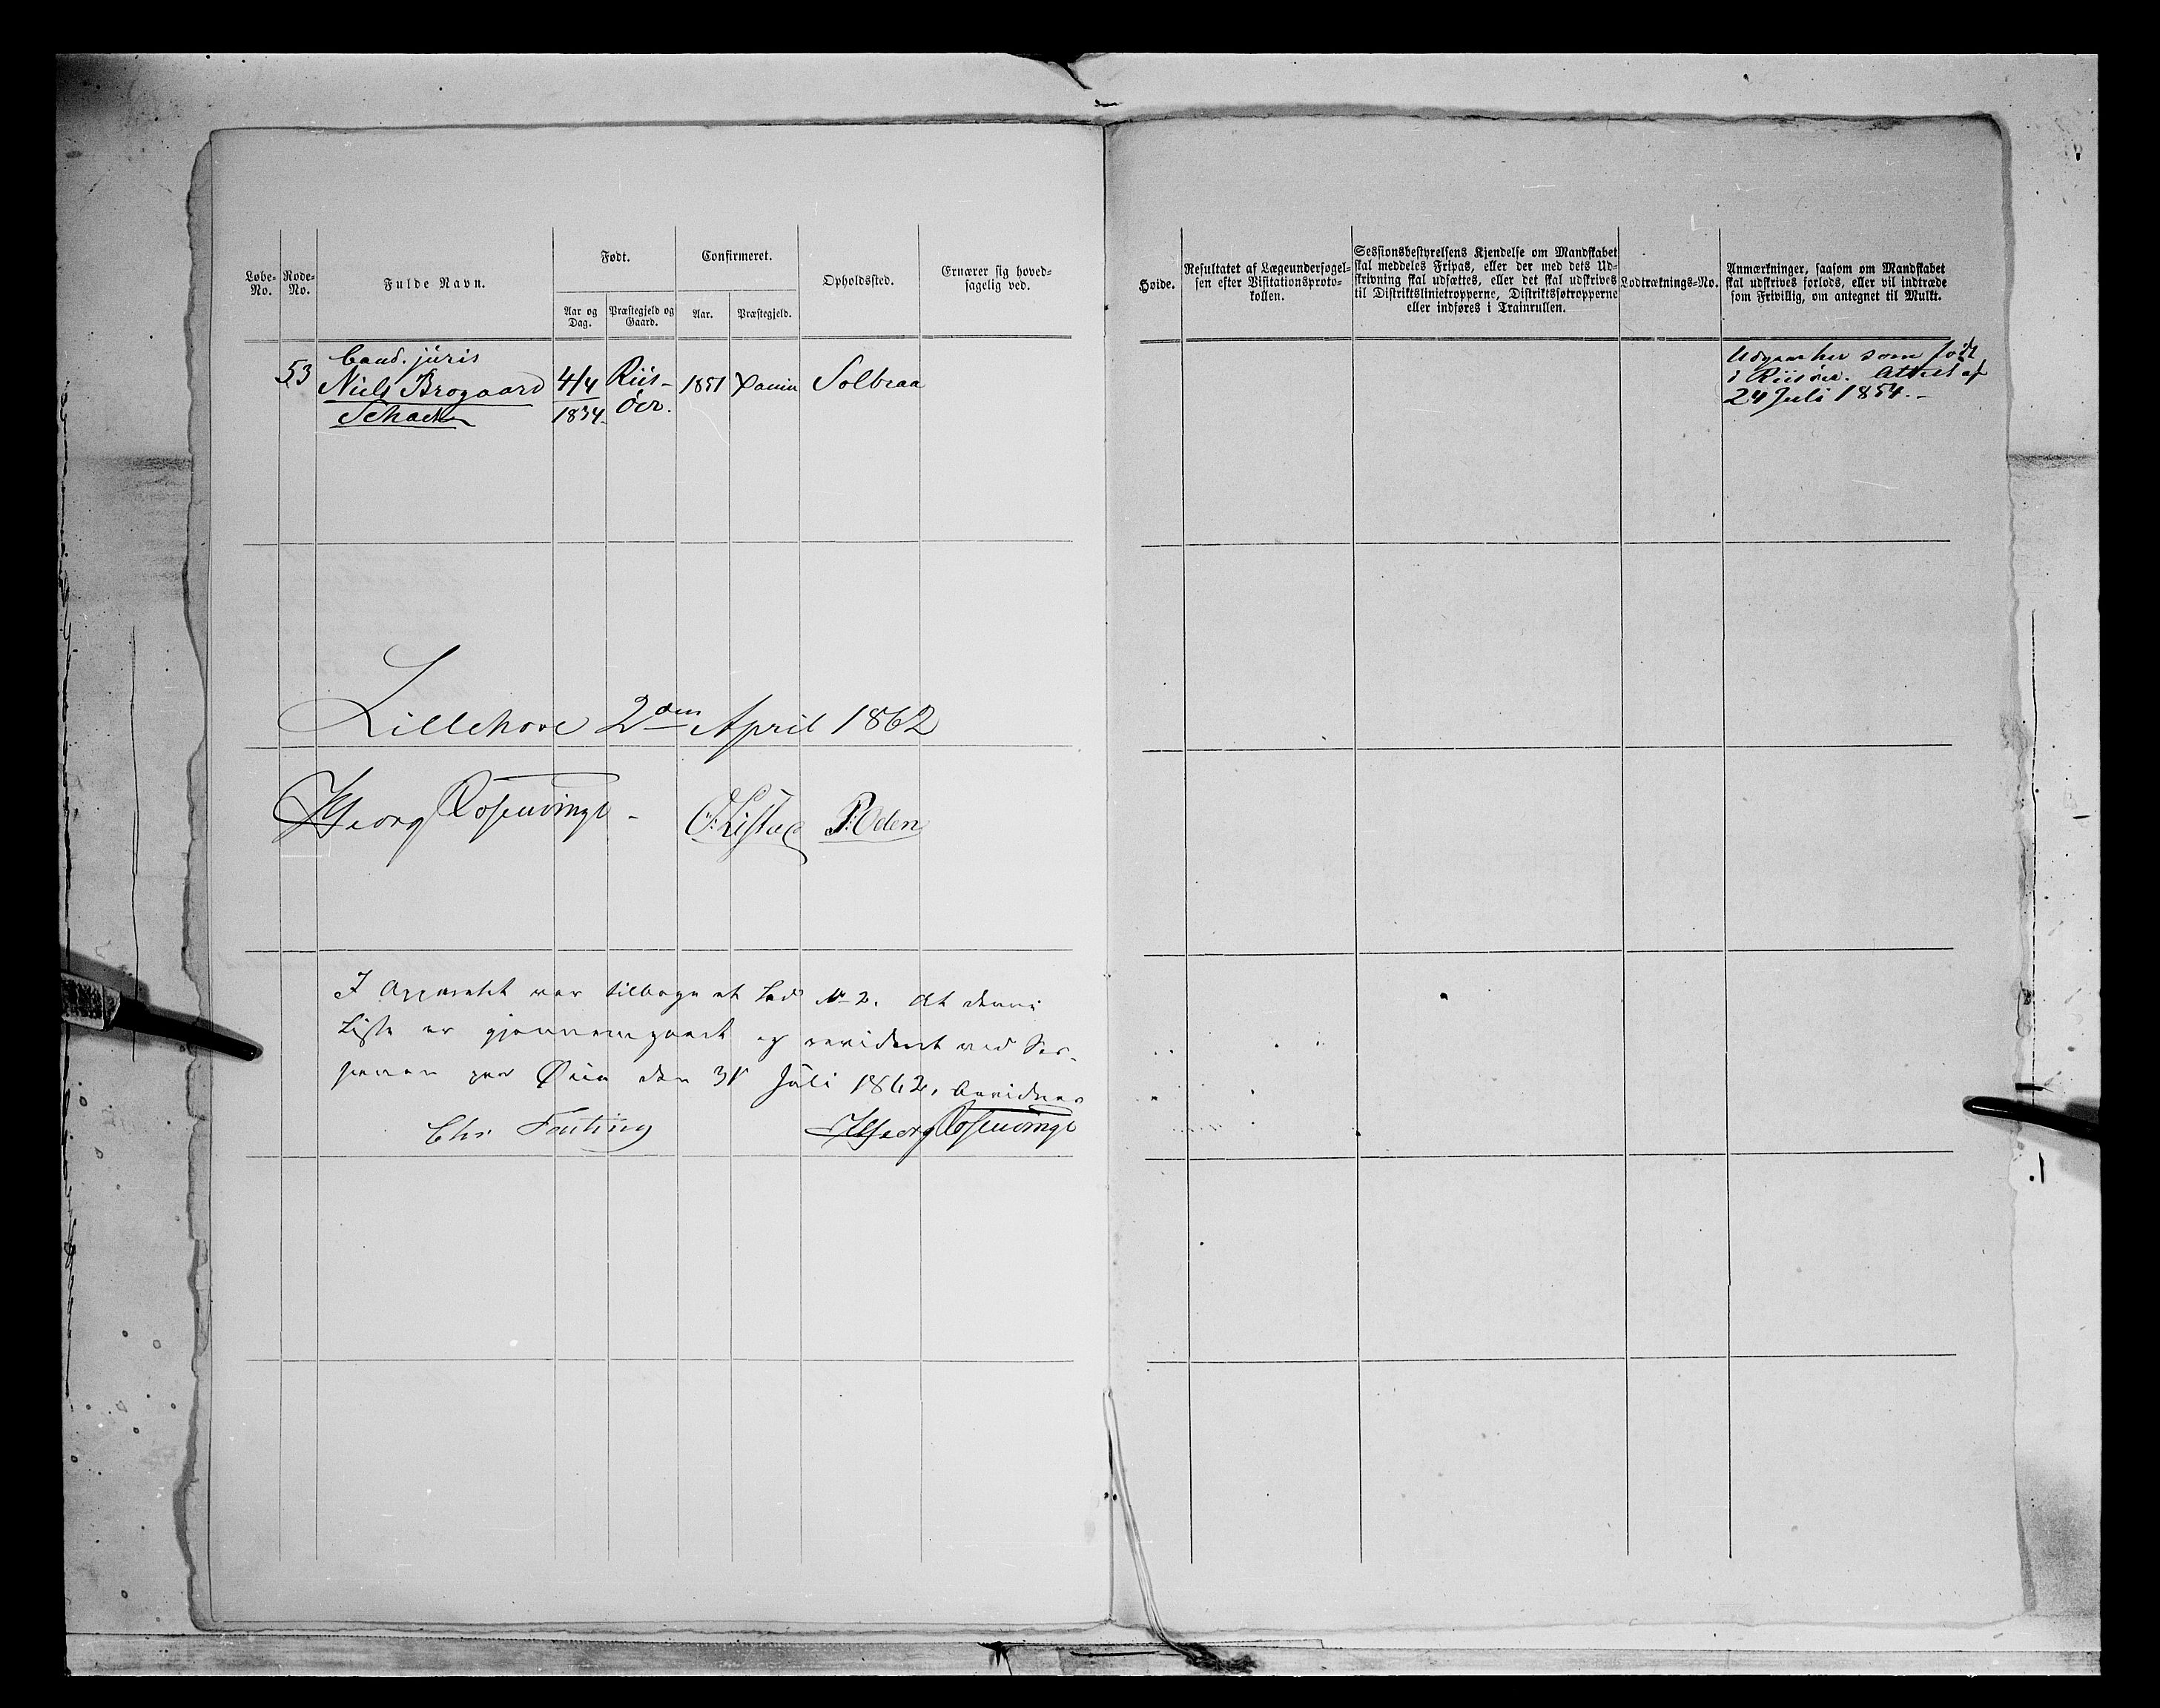 Løbe-
No.
Rode-
No.
Fulde Navn.
Født.
Aar og
Dag.
Præstegjeld og
Gaard.
Confirmeret.
Aar.
Præstegjeld.
Opholdssted.
Ernærer sig hoved-
sagelig ved.
Høide.
Resultatet af Lægeundersøgel-
sen efter Visitationsproto-
kollen.
Sessionsbestyrelsens Kjendelse om Mandskabet
skal meddeles Fripas, eller der med dets Ud-
skrivning skal udsættes, eller det skal udskrives
til Distriktslinietropperne, Distriktssøtropperne
eller indføres i Trainrullen.
Lodtræknings-No.
Anmærkninger, saasom om Mandskabet
skal udskrives forlods, eller vil indtræde
som Frivillig, om antegnet til Mulkt.
53
Cand. juris
Niels Brogaard
Schact
4/4
1834
Riis-
öer.
1851
Solbraa
Udgaar her som født
i Riisöer. Attest af
24 Juli 1854.-
Lillehove 2den April 1862
HGeorg Rosenvinge -
P: Oden
I Apparatet var tilbage et Lod No 2. At denne
Liste er gjennemgaaet og revideret ved Ses-
sionen paa Øien den 31 Juli 1862, bevidnes
Chr
HGeorg Rosenvinge